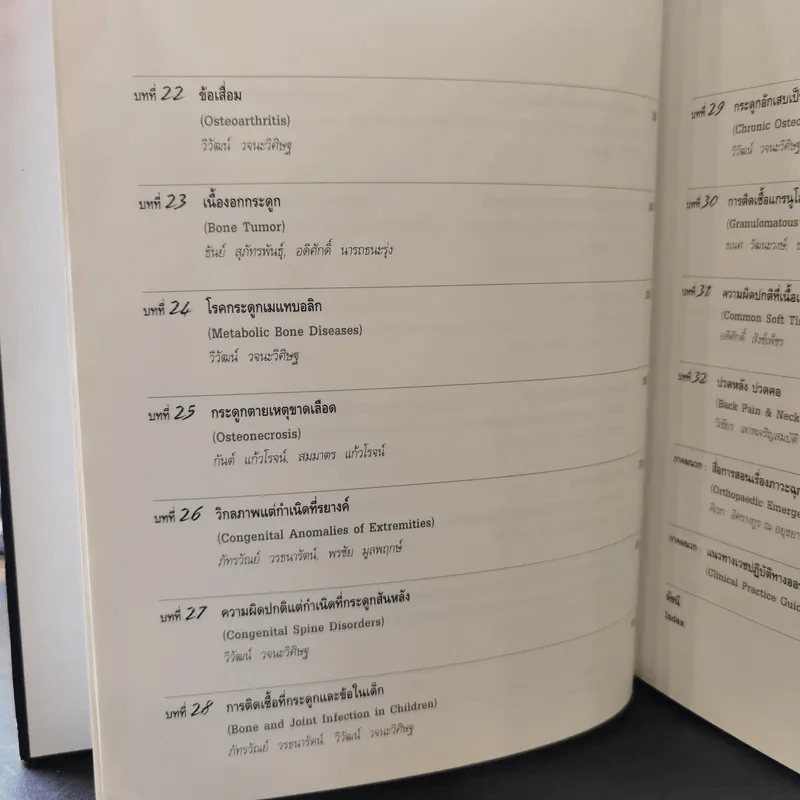 บทที่ 22 ข้อเสื่อม
(Osteoarthritis)
วิวัฒน์ วจนะวิศิษฐ
บทที่ 23 เนื้องอกกระดูก
(Bone Tumor)
ธันย์ สุภัทรพันธุ์, อดิศักดิ์ นารถธนะรุ่ง
บทที่ 24 โรคกระดูกเมแทบอลิก
(Metabolic Bone Diseases)
วิวัฒน์ วจนะวิศิษฐ
บทที่ 25 กระดูกตายเหตุขาดเลือด
(Osteonecrosis)
กันต์ แก้วโรจน์, สมมาตร แก้วโรจน์
บทที่ 26 วิกลภาพแต่กำเนิดที่รยางค์
(Congenital Anomalies of Extremities)
ภัทรวัณย์ วรธนารัตน์, พรชัย มูลพฤกษ์
บทที่ 27 ความผิดปกติแต่กำเนิดที่กระดูกสันหลัง
(Congenital Spine Disorders)
วิวัฒน์ วจนะวิศิษฐ
บทที่ 28 การติดเชื้อที่กระดูกและข้อในเด็ก
(Bone and Joint Infection in Children)
ภัทรวัณย์ วรธนารัตน์, วิวัฒน์ วจนะวิศิษฐ
บทที่ 29 กระดูกอักเสบ
(Chronic
วิวัฒน์
บทที่ 30 การติดเชื้อ
(Granulomatous
ธเนศ วัฒนะวงษ์,
บทที่ 31 ความผิดปกติที่
(Common Soft
อดิศักดิ์ สังข์เพ็ชร
บทที่ 32 ปวดหลัง ปวดคอ
(Back Pain & Neck
วิเชียร เลาหเจริญสมบัติ
ภาคผนวก : สื่อการสอนเรื่อง
(Orthopaedic
ภาคผนวก : แนวทางเวชปฏิบัติ
(Clinical Practice
ดัชนี
Index